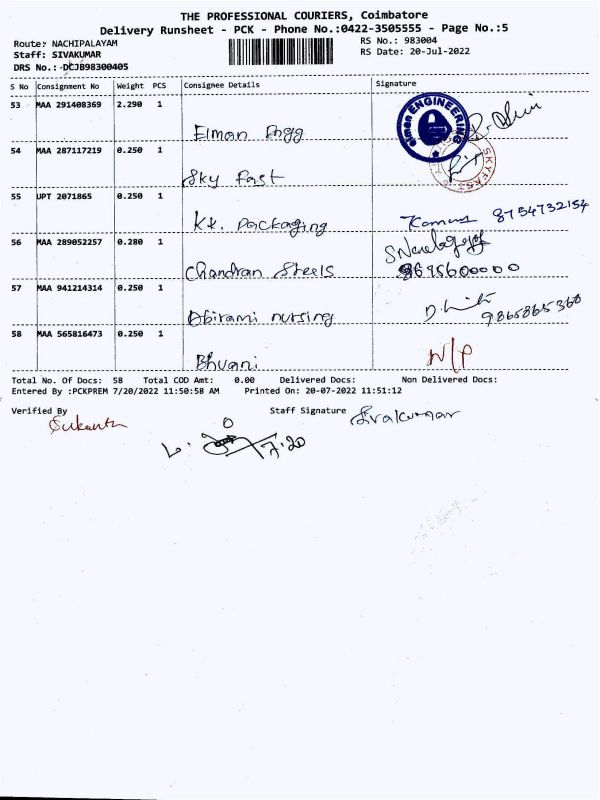 THE PROFESSIONAL COURIERS, Coimbatore
Delivery Runsheet - PCK - Phone No.:0422-3505555 - Page No.:5
Route: NACHIPALAYAM RS No.: 983004
Staff: SIVAKUMAR RS Date: 20-Jul-2022
DRS No.: DCJB98300405
S No Consignment No Weight PCS Consignee Details Signature
53 MAA 291408369 2.290 1
Elman Engg
ENGINEERING
54 MAA 287117219 0.250 1
Sky Fast
SKYFAST
55 UPT 2071865 0.250 1
KK. Packaging 8754732154
56 MAA 289052257 0.280 1
Chandran Steels 9695600000
57 MAA 941214314 0.250 1
Abirami nursing 9865865360
58 MAA 565816473 0.250 1
Bhvani N/P
Total No. Of Docs: 58 Total COD Amt: 0.00 Delivered Docs: Non Delivered Docs:
Entered By :PCKPREM 7/20/2022 11:50:58 AM Printed On: 20-07-2022 11:51:12
Verified By Staff Signature Sivakumar
Sukanth
7.20